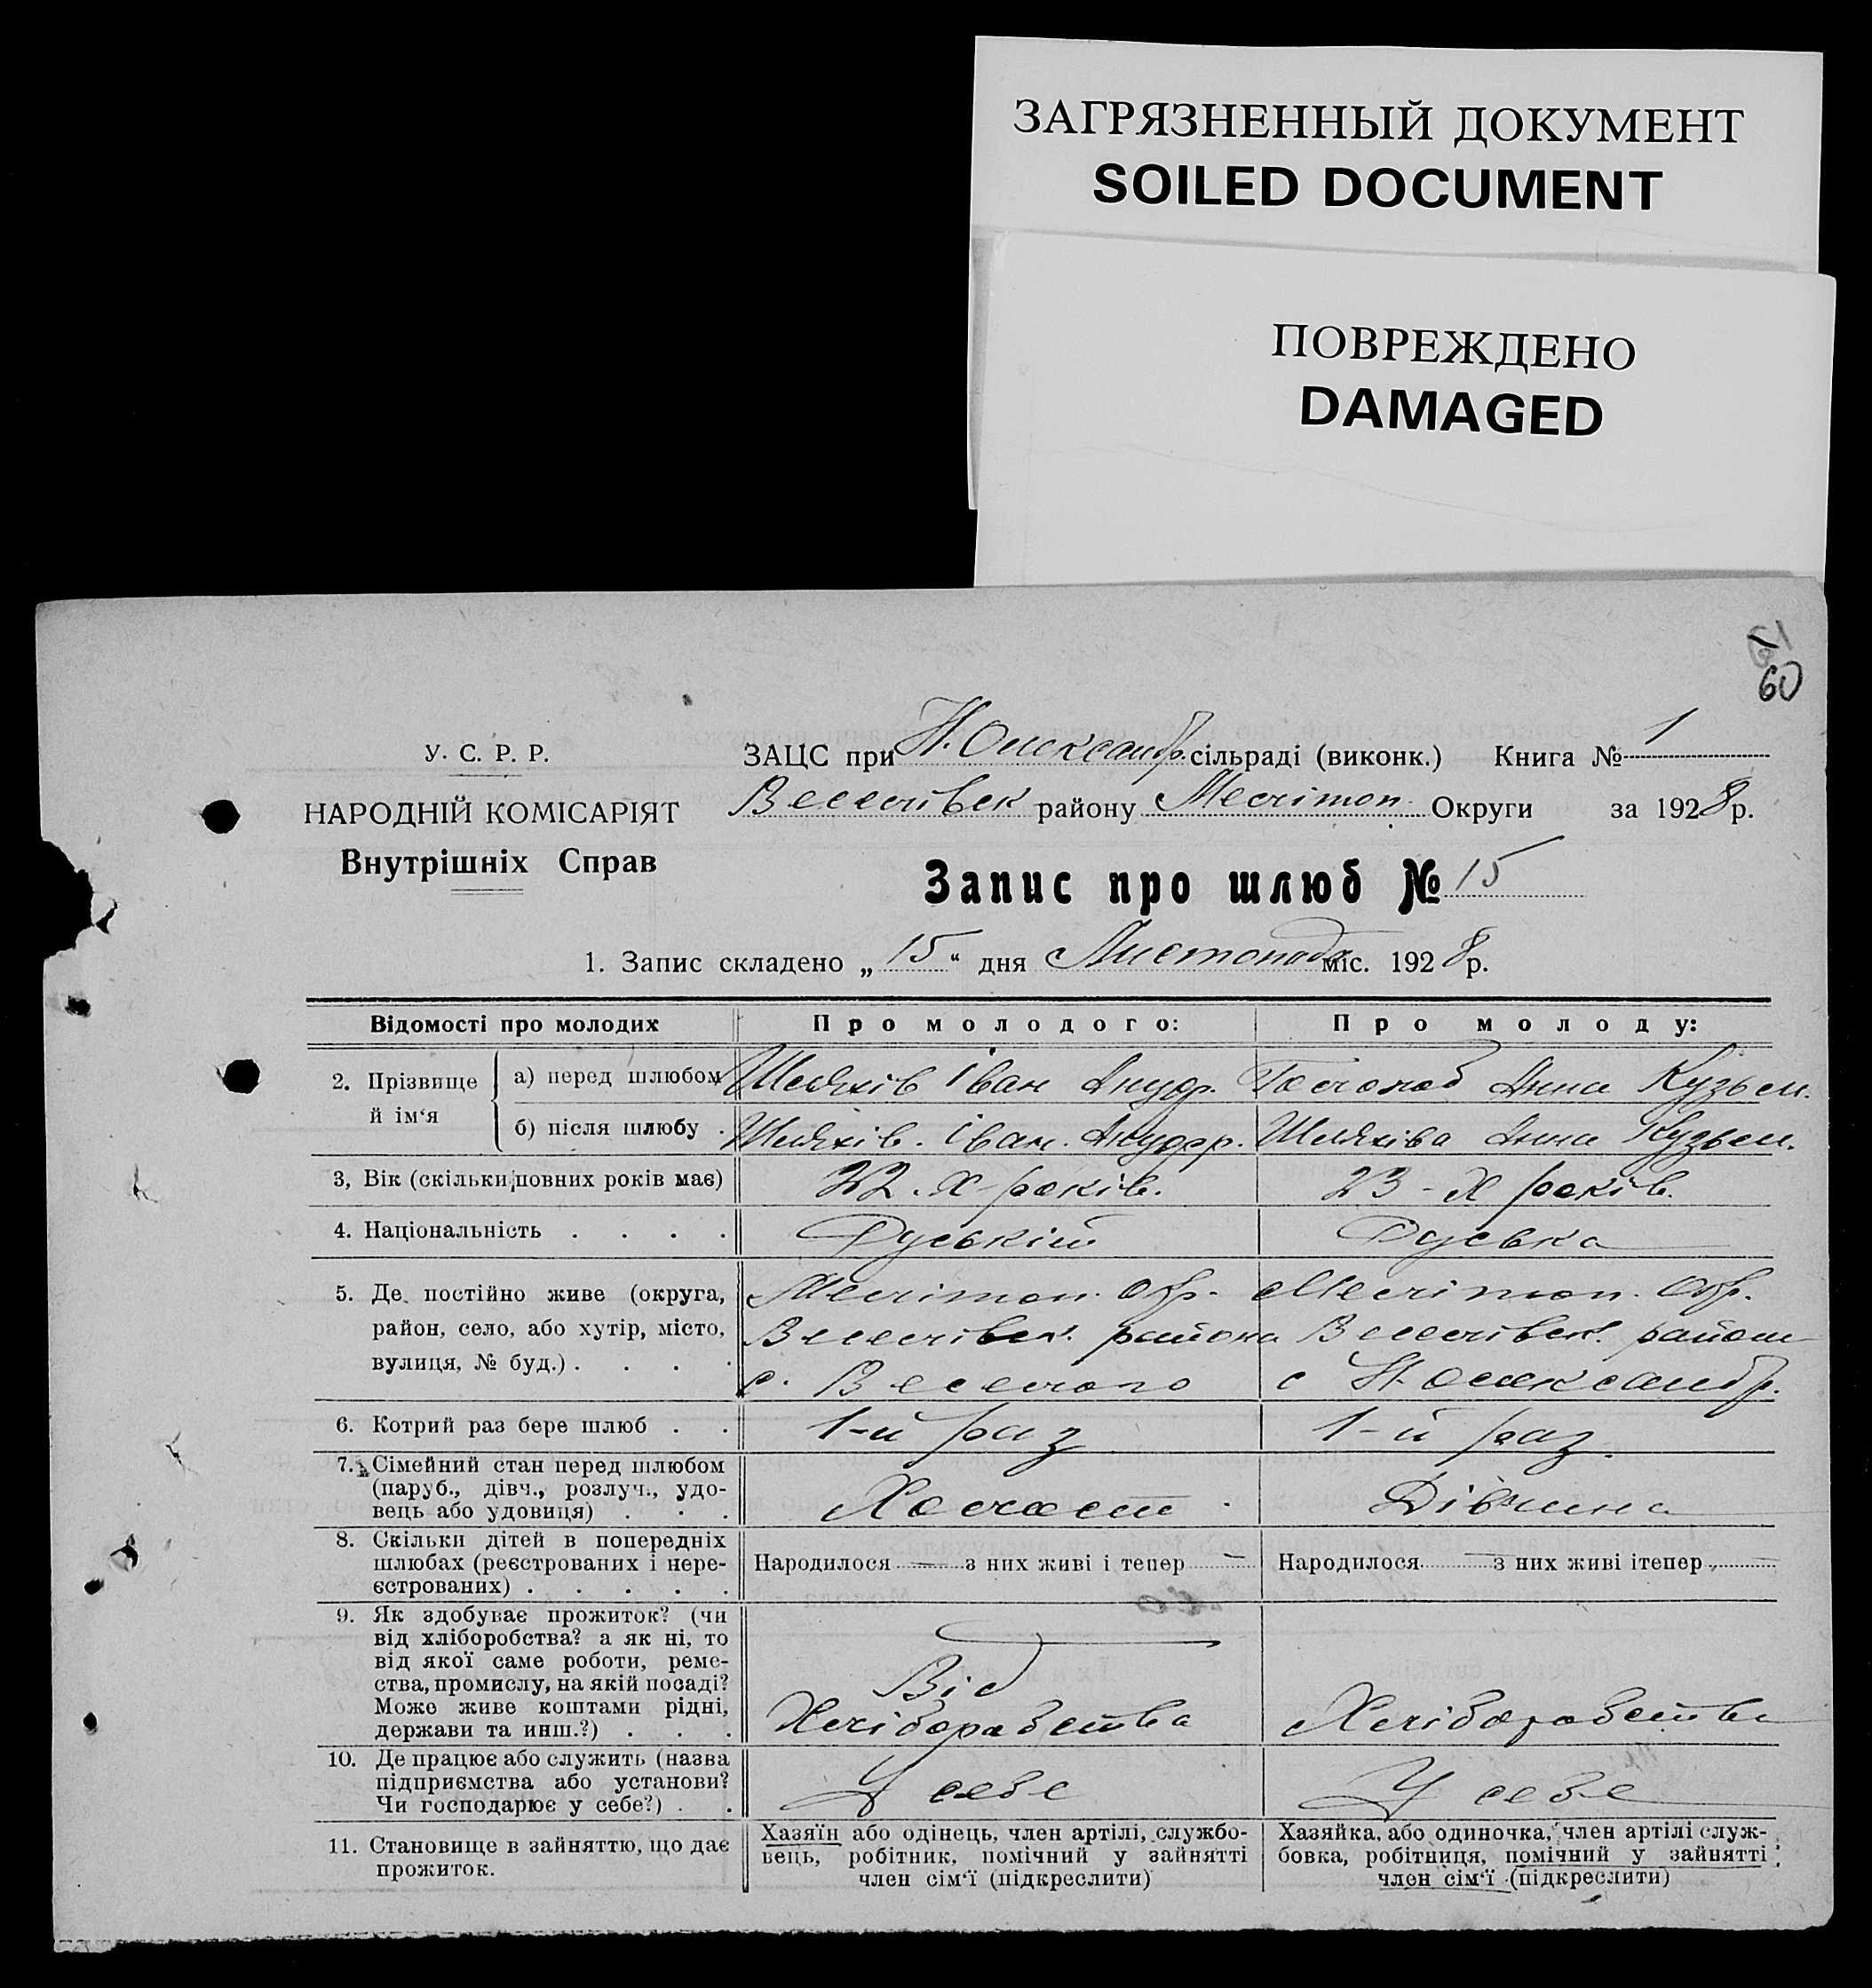 ЗАГРЯЗНЕННЫЙ ДОКУМЕНТ
SOILED DOCUMENT
ПОВРЕЖДЕНО
DAMAGED
60
У. С. Р. Р.
НАРОДНІЙ КОМІСАРІЯТ
Внутрішніх Справ
ЗАЦС при Н. Олександр. сільраді (виконк.) Книга № 1
Веселівск району Мелітоп. Округи за 1928 р.
Запис про шлюб № 15
1. Запис складено „15“ дня Листопада міс. 1928 р.
Відомості про молодих Про молодого: Про молоду:
2. Прізвище й ім‘я
а) перед шлюбом Іван Анна Кузьм.
б) після шлюбу . Іван. Анна Кузьм.
3, Вік (скільки повних років має) 22-х років. 23-х років.
4. Національність . . . . Руський Руська
5. Де постійно живе (округа, Мелітоп. Окр. Мелітоп. Окр.
район, село, або хутір, місто, Веселівск. района Веселівск. район
вулиця, № буд.) . . . . с. Веселого с Н. Олександр.
6. Котрий раз бере шлюб . . 1-й раз 1-й раз.
7. Сімейний стан перед шлюбом
(паруб., дівч., розлуч., удо-
вець або удовиця) . . . Холост Дівчина
8. Скільки дітей в попередніх
шлюбах (реєстрованих і нере- Народилося — з них живі і тепер — Народилося — з них живі ітепер —
єстрованих) . . . . .
9. Як здобуває прожиток? (чи
від хліборобства? а як ні, то
від якої саме роботи, реме-
ства, промислу, на якій посаді? Від
Може живе коштами рідні, Хліборобства Хліборобства
держави та инш.?) . . .
10. Де працює або служить (назва
підприємства або установи? У себе У себе
Чи господарює у себе?) . .
11. Становище в зайняттю, що дає
прожиток.
Хазяїн або одінець, член артілі, службо-
вець, робітник, помічний у зайнятті
член сім‘ї (підкреслити)
Хазяйка, або одиночка, член артілі служ-
бовка, робітниця, помічний у зайнятті
член сім‘ї (підкреслити)